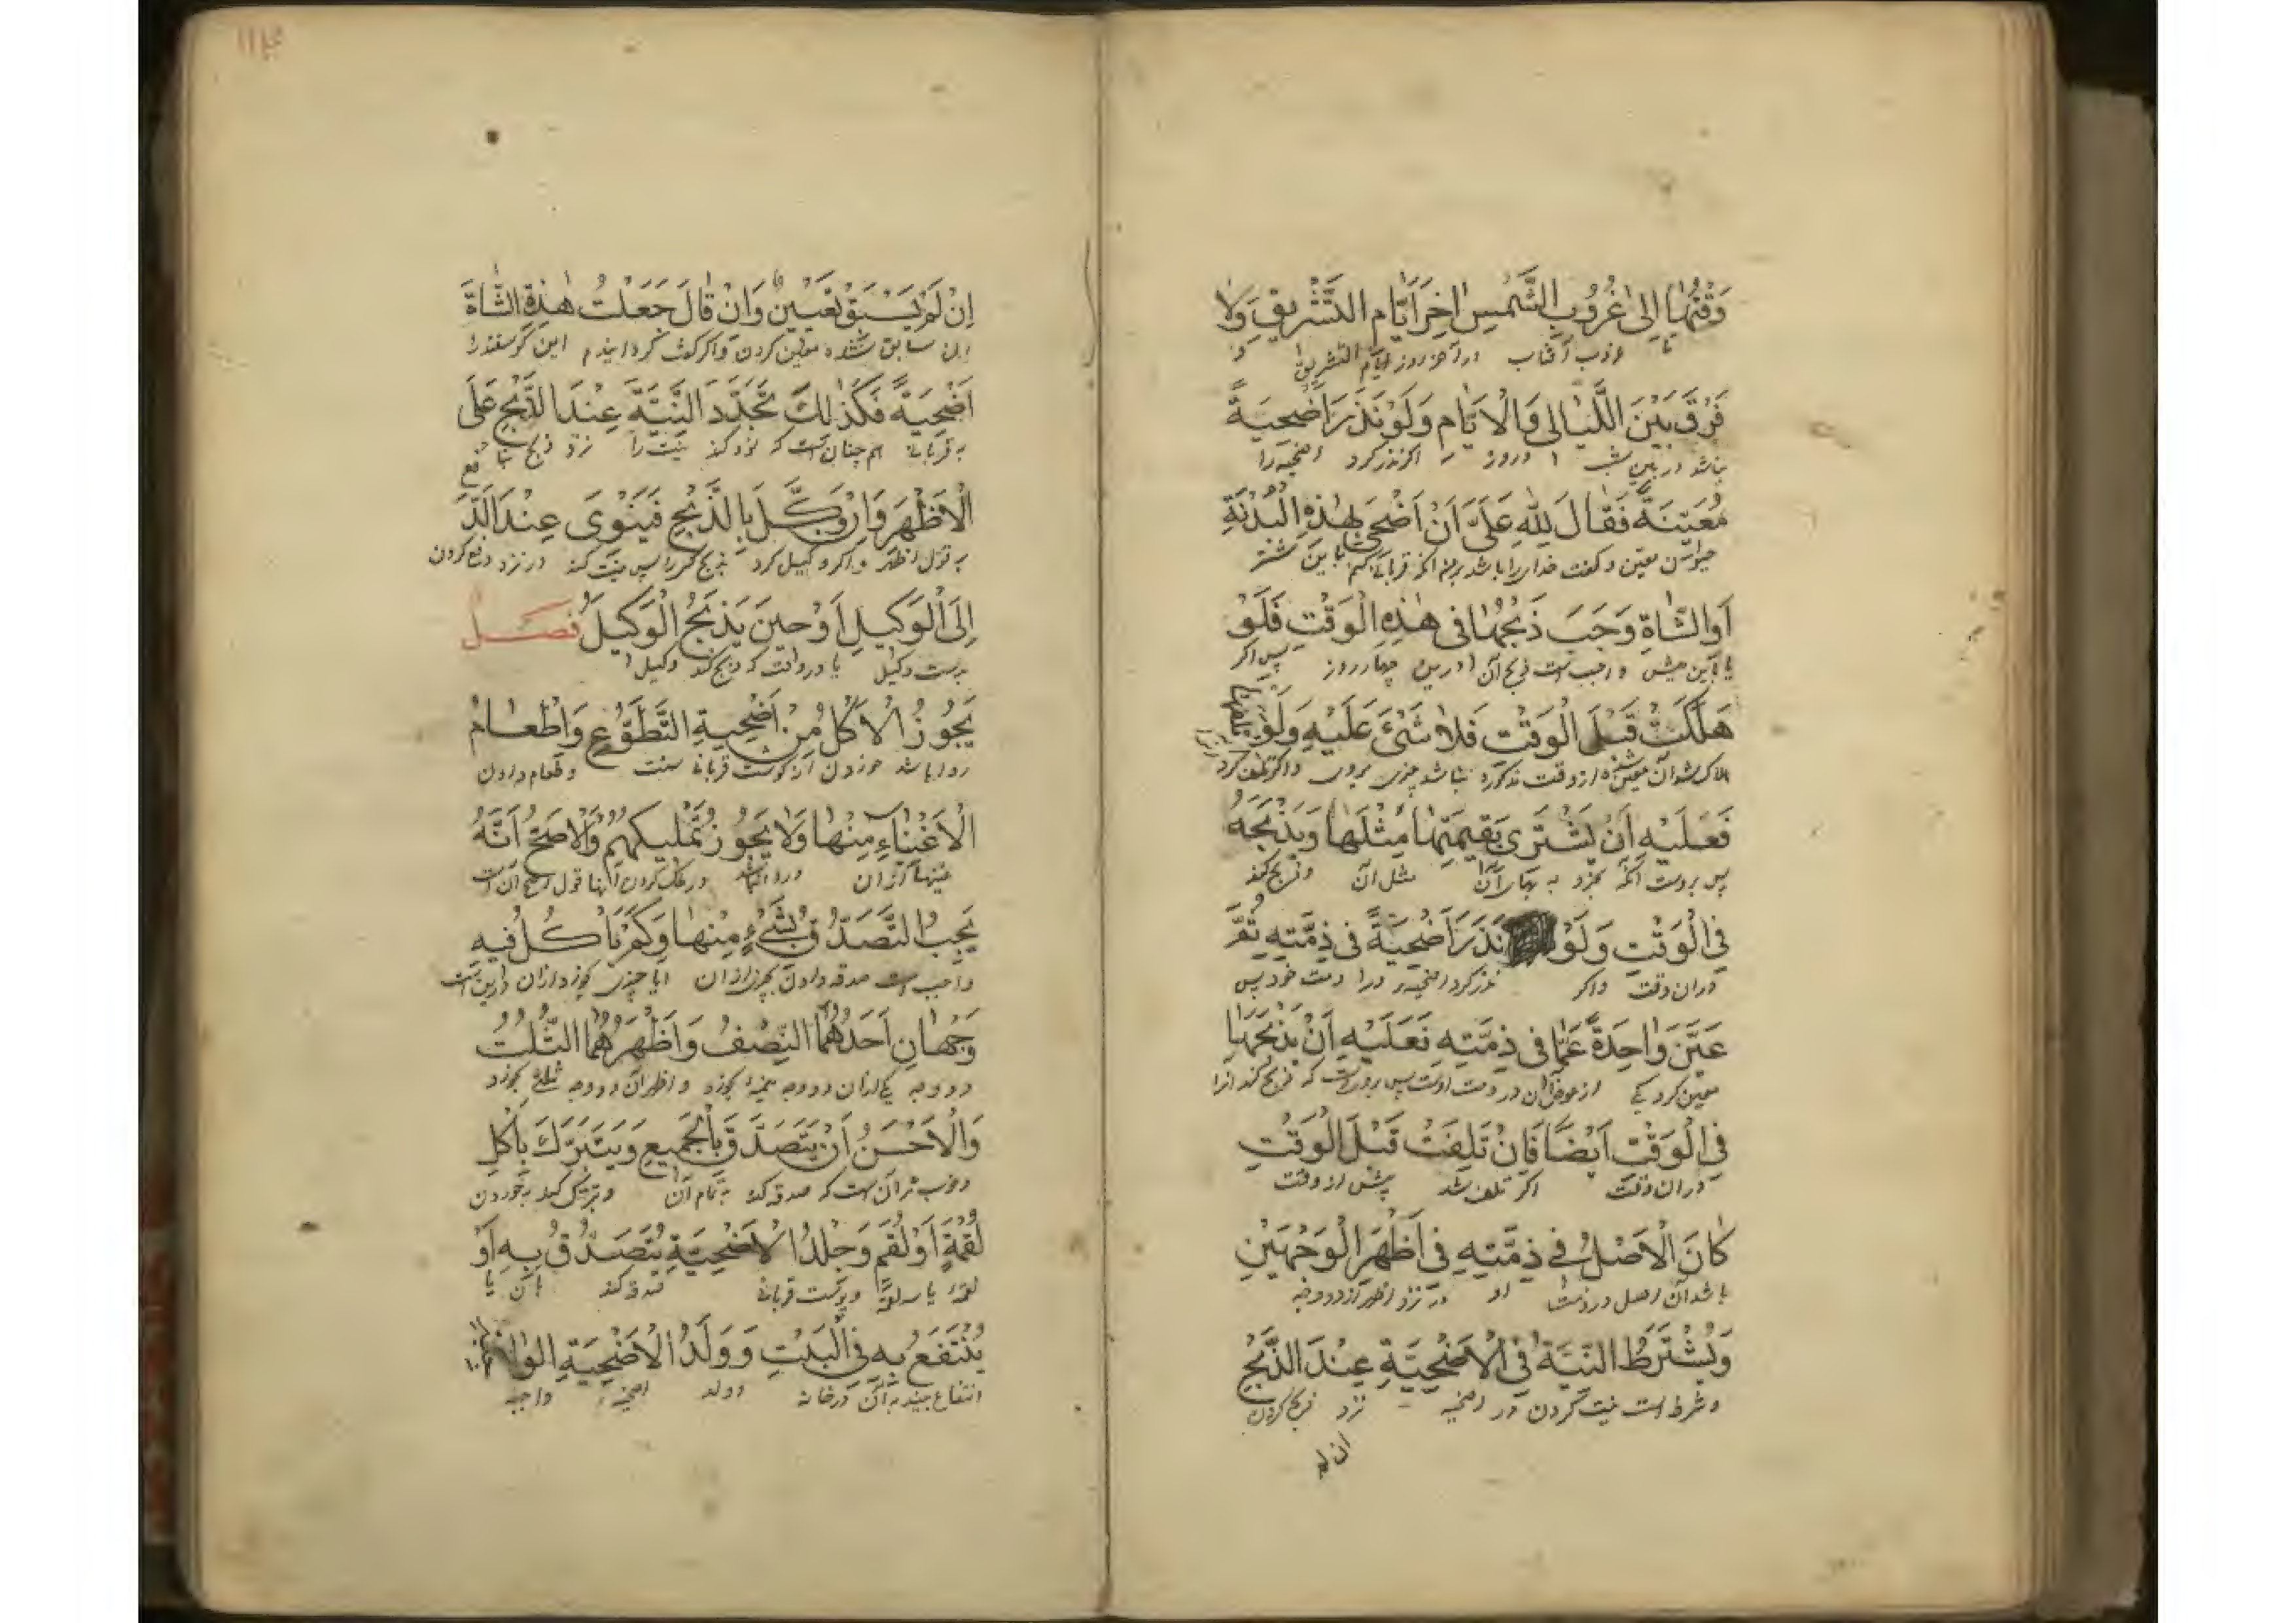 وَقْتُهَا اِلٰى غُرُوبِ الشَّمْسِ اٰخِرَ اَيَّامِ التَّشْرِيقِ وَلَا
تا غروب آفتاب در آخر روز ايام التشريق و
فَرْقَ بَيْنَ اللَّيَالِى وَالْاَيَّامِ وَلَوْ نَذَرَ اُضْحِيَةً
نباشد در بين شب و روز اكر نذر كرد اضحيه را
مُعَيَّنَةً فَقَالَ لِلّٰهِ عَلَىَّ اَنْ اُضَحِّىَ بِهٰذِهِ الْبَدَنَةِ
معين و كفت خدايرا باشد قربانى كنم باين شتر
اَوِ الشَّاةِ وَجَبَ ذَبْحُهَا فِى هٰذِهِ الْوَقْتِ فَلَوْ
يا باين ميش واجب است ذبح آن درين چهار روز پس اكر
هَلَكَتْ قَبْلَ الْوَقْتِ فَلَا شَىْءَ عَلَيْهِ وَلَوْ تلفها
هلاك شد آن معين از وقت مذكوره نباشد چيزى بروى واكر تلف كرد
فَعَلَيْهِ اَنْ يَشْتَرِىَ بِقِيمَتِهَا مِثْلَهَا وَيَذْبَحَهُ
پس بروست آنكه بخرد به بهاى آن مثل آن و ذبح كند
فِى الْوَقْتِ وَلَوْ نَذَرَ اُضْحِيَةً فِى ذِمَّتِهِ ثُمَّ
در ان وقت واكر نذر كرد اضحيه را در ذمت خود پس
عَيَّنَ وَاحِدَةً عَمَّا فِى ذِمَّتِهِ فَعَلَيْهِ اَنْ يَذْبَحَهَا
معين كرد يكى از عوض آن در ذمت اوست پس بروست كه ذبح كند آنرا
فِى الْوَقْتِ اَيْضًا فَاِنْ تَلِفَتْ قَبْلَ الْوَقْتِ
در ان وقت اكر تلف شد پيش از وقت
كَانَ الْاَصْلُ فِى ذِمَّتِهِ فِى اَظْهَرِ الْوَجْهَيْنِ
باشد آن اصل در ذمت او در نزد اظهر از دو وجه
وَيُشْتَرَطُ النِّيَّةُ فِى الْاُضْحِيَّةِ عِنْدَ الذَّبْحِ
و شرط است نيت كردن در اضحيه نزد ذبح كردن
ان لم
١١٤
اِنْ لَمْ يَسْبَقْ تَعْيِينٌ وَاِنْ قَالَ جَعَلْتُ هٰذِهِ الشَّاةَ
سابق نشده معين كردن و اكر كفت كردانيدم اين كوسفند را
اُضْحِيَةً فَكَذٰلِكَ تُجَدَّدَ النِّيَّةَ عِنْدَ الذَّبْحِ عَلَى
به قربانى همچنان است كه نو كند نيت را نزد ذبح بنا
الْاَظْهَرِ وَاِنْ وَكَّلَ بِالذَّبْحِ فَيَنْوَى عِنْدَ الدَّ
به قول اظهر و اكر وكيل كرد بذبح پس نيت كند در نزد دفع كردن
فع
اِلَى الْوَكِيلِ اَوْ حِينَ يَذْبَحُ الْوَكِيلُ فَصْلٌ
بدست وكيل يا در وقت كه ذبح كند وكيل
يَجُوزُ الْاَكْلُ مِنْ اُضْحِيَةِ التَّطَوُّعِ وَاِطْعَامُ
روا باشد خوردن از كوشت قربانى سنت و طعام دادن
الْاَغْنِيَاءِ مِنْهَا وَلَا يَجُوزُ تَمْلِيكُهُمْ وَالْاَصَحُّ اَنَّهُ
غنيها از ان و روا نباشد در ملك كردن آنها قول اصح آن است
يَجِبُ التَّصَدُّقُ بِشَىْءٍ مِنْهَا وَكَمْ يَاْكُلُ فِيهِ
واجب است صدقه دادن بچيزى از ان ايا چيزى بخورد از ان درين است
وَجْهَانِ اَحَدُهُمَا النِّصْفُ وَاَظْهَرُهُمَا الثُّلُثُ
دو وجه يكى از ان دو وجه نيمه بخورد و اظهر آن دو وجه ثلث بخورد
وَالْاَحْسَنُ اَنْ يَتَصَدَّقَ بِالْجَمِيعِ وَيَتَبَرَّكَ بِاَكْلِ
و خوب تر آن است كه صدقه كند به تمام آن و تبرك كند به خوردن
لُقْمَةٍ اَوْ لُقَمٍ وَجِلْدُ الْاُضْحِيَةِ يُتَصَدَّقُ بِهِ اَوْ
لقمه يا سه لقمه و پوست قربانى صدقه كند بآن يا
يُنْتَفَعُ بِهِ فِى الْبَيْتِ وَوَلَدُ الْاُضْحِيَةِ الوا
انتفاع بيند بآن در خانه و ولد اضحيه واجبه